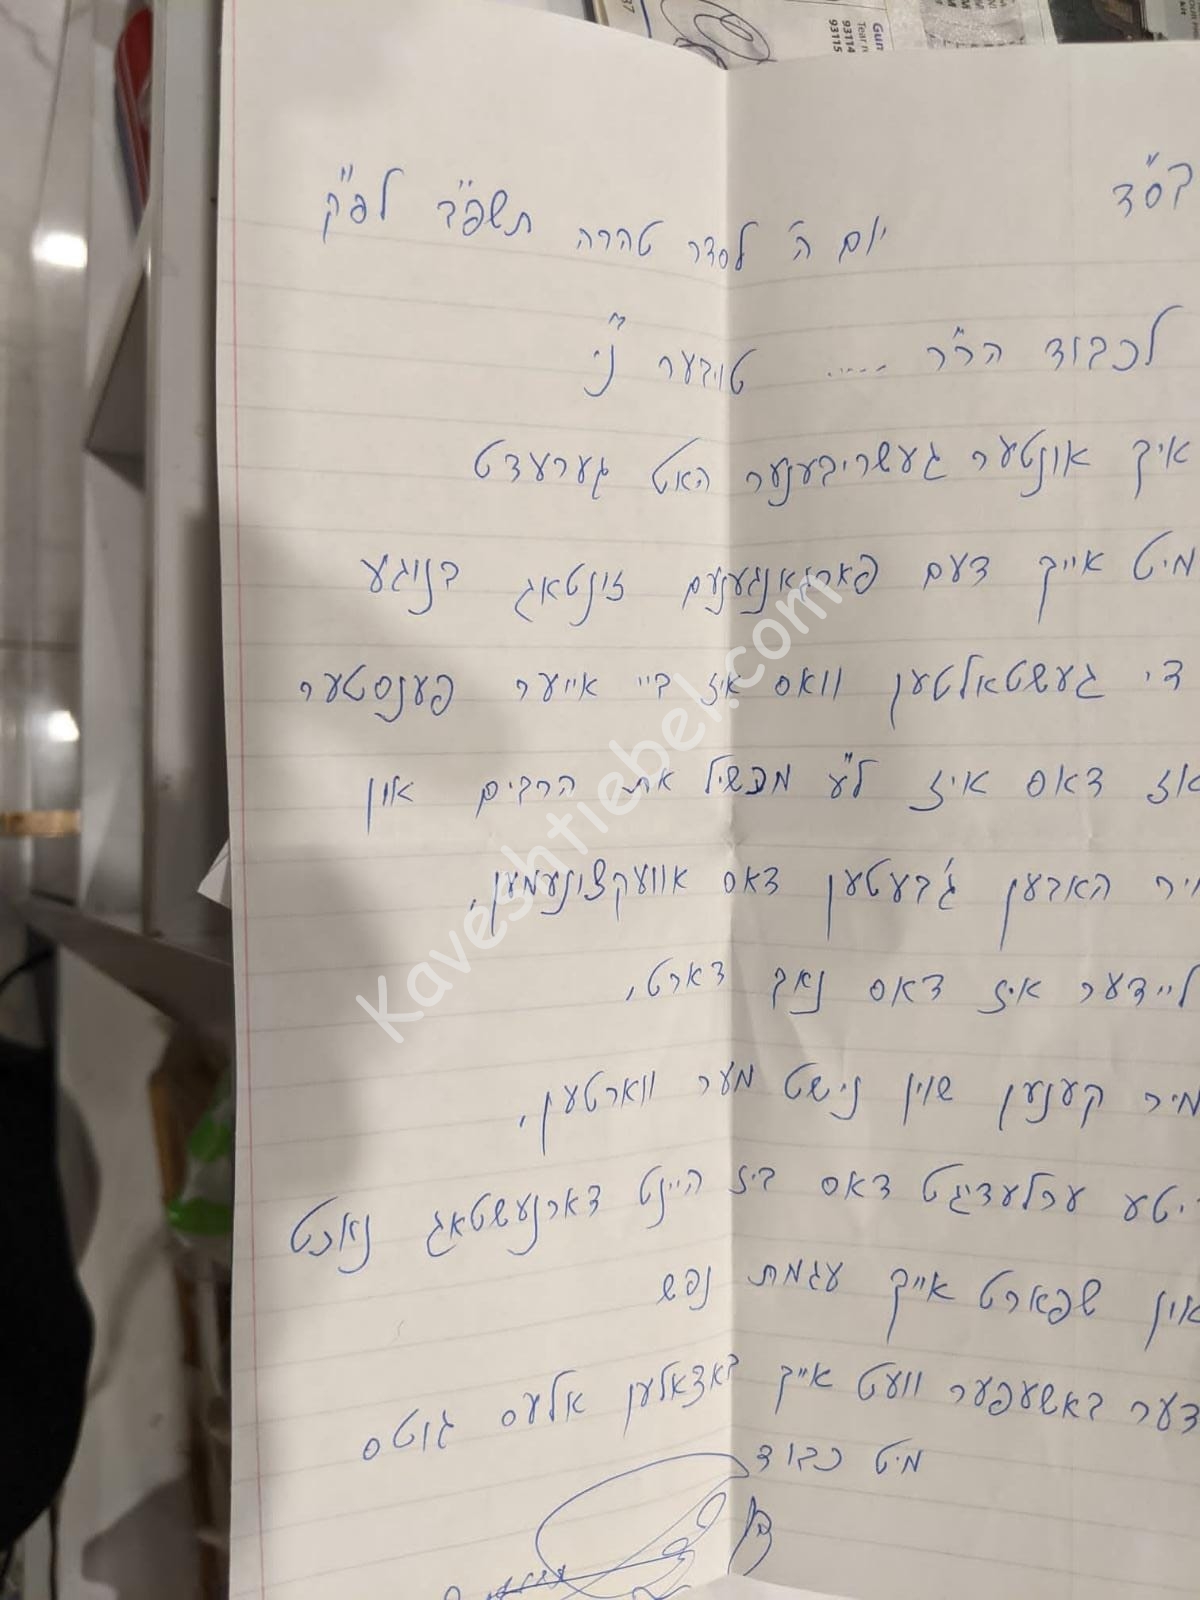 Gun
Tear n
93114
93115
37
בס"ד
יום ה' לסדר טהרה תשפ"ב לפ"ק
לכבוד הר"ר ..... טויבער ני"
איך אונטער געשריבענער האט גערעדט
מיט אייך דעם פארגאנגענעם זונטאג בנוגע
די געשטאלטען וואס איז ביי אייער פענסטער
אז דאס איז ל"ע מכשיל את הרבים און
מיר האבען ג'בעטען דאס אוועקצונעמען,
ליידער איז דאס נאך דארט,
מיר קענען שוין נישט מער ווארטען,
ערלעדיגט דאס ביז היינט דארנעשטאג נאכט
און שפארט אייך עגמת נפש
דער באשעפער וועט אייך באצאלען אלעס גוטס
מיט כבוד
Kaveshtiebel.com